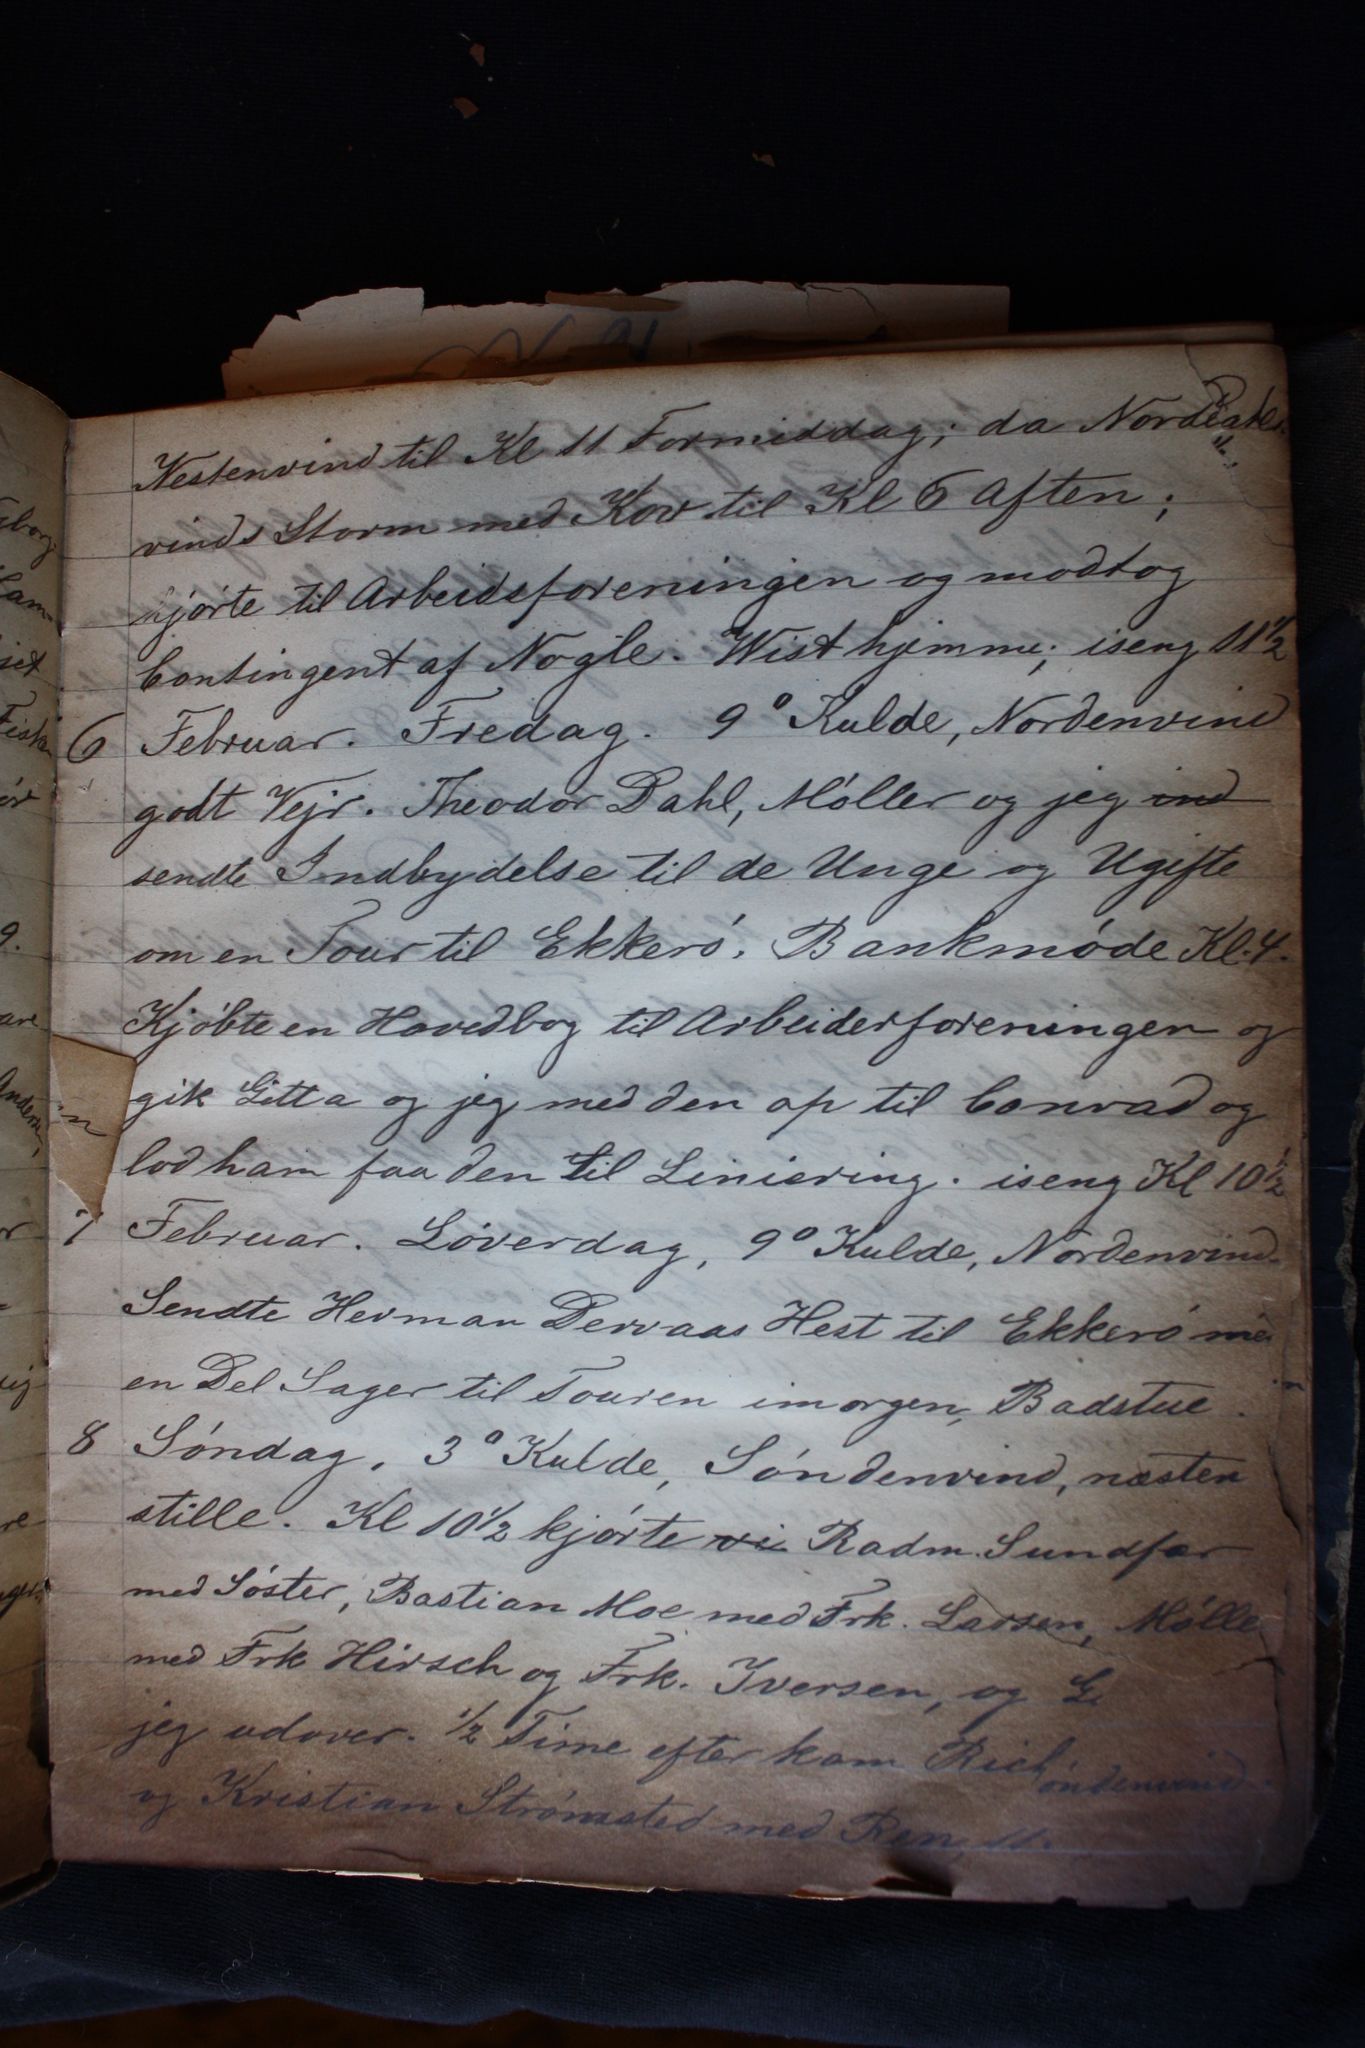 Vestenvind til Kl 11 Formiddag; da Nord
vinds Storm med Kov til Kl 6 Aften;
kjørte til Arbeidsforeningen og modtog
Contingent af Nogle. Wist hjemme; iseng 11½
6 Februar. Fredag. 9° Kulde, Nordenvind
godt Vejr. Theodor Dahl, Møller og jeg ind
sendte Indbydelse til de Unge og Ugifte
om en Tour til Ekkerø. Bankmøde Kl. 4.
Kjøbte en Hovedbog til Arbeiderforeningen og
gik Gitta og jeg med den op til Conrad og
lod ham faa den til Liniering. iseng Kl 10½
7 Februar. Løverdag, 9° Kulde, Nordenvind.
Sendte Herman Dervaas Hest til Ekkerø me
en Del Sager til Touren imorgen, Badstue.
8 Søndag. 3° Kulde, Søndenvind, næsten
stille. Kl 10½ kjørte vi Radm. Sundfær
med Søster, Bastian Moe med Frk. Larsen, Mølle
med Frk Hirsch og Frk. Iversen, og G
jeg udover. ½ Time efter kom Rich
øndenvind.
og Kristian Strømsted med Ren, 11.